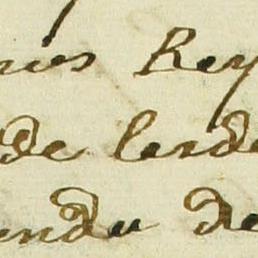 nies Rey
de lesde
enda de